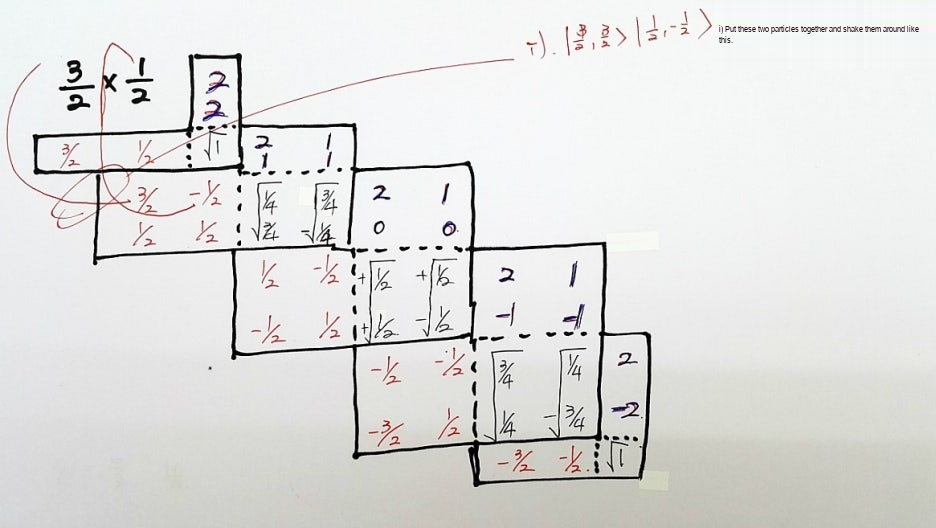 i). |3/2, 3/2 > |1/2, -1/2 >
i) Put these two particles together and shake them around like
this.
3/2 x 1/2
2
2
3/2 1/2 √1 2 1
1 1
3/2 -1/2 √1/4 √3/4 2 1
1/2 1/2 √3/4 -√1/4 0 0
1/2 -1/2 +√1/2 +√1/2 2 1
-1/2 1/2 +√1/2 -√1/2 -1 -1
-1/2 -1/2 √3/4 √1/4 2
-3/2 1/2 √1/4 -√3/4 -2
-3/2 -1/2 √1